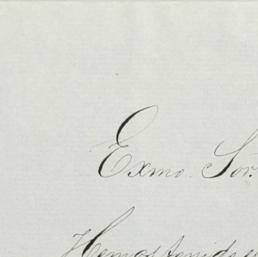 Exmo. Sor.
Hemos tenido el